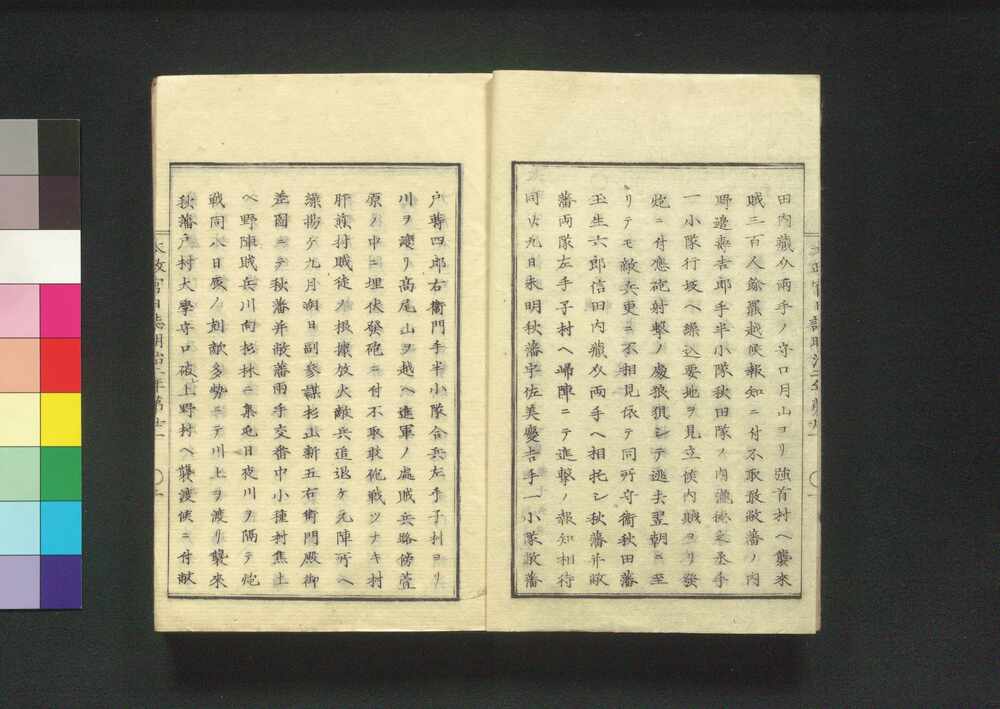 田内蔵众両手ノ守口月山ヨリ強首村ヘ襲来
賊三百人餘罷越候報知ニ付不取敢敝藩ノ内
野邉壽吉郎手半小隊秋田隊ノ内瀧徳之丞手
一小隊行坂ヘ繰込要地ヲ見立候内賊ヨリ發
炮ニ付應砲射撃ノ處狼狽シテ逃去翌朝ニ至
リテモ敵兵更ニ不相見依テ同所守衛秋田藩
玉生六郎信田内蔵众両手ヘ相托シ秋藩并敝
藩両隊左手子村ヘ帰陣ニテ進撃ノ報知相待
同廿九日未明秋藩宇佐美慶吉手一小隊敝藩
戸蒔四郎右衛門手半小隊合兵左手子村ヨリ
川ヲ渡リ高尾山ヲ越ヘ進軍ノ處賊兵路傍萱
原ノ中ニ埋伏發砲ニ付不取敢砲戦ツナキ村
肝煎持賊徒ノ根據放火敵兵追退ケ元陣所ヘ
繰揚ケ九月朔日副參謀杉山新五右衛門殿御
差圖ニテ秋藩并敝藩両手交番中小種村焦土
ヘ野陣賊兵川向杉林ニ集屯日夜川ヲ隔テ炮
戦同八日辰ノ刻敵多勢ニテ川上ヲ渡リ襲来
秋藩戸村大學守口破上野村ヘ襲渡候ニ付敝
太政官日誌明治二年第廿一